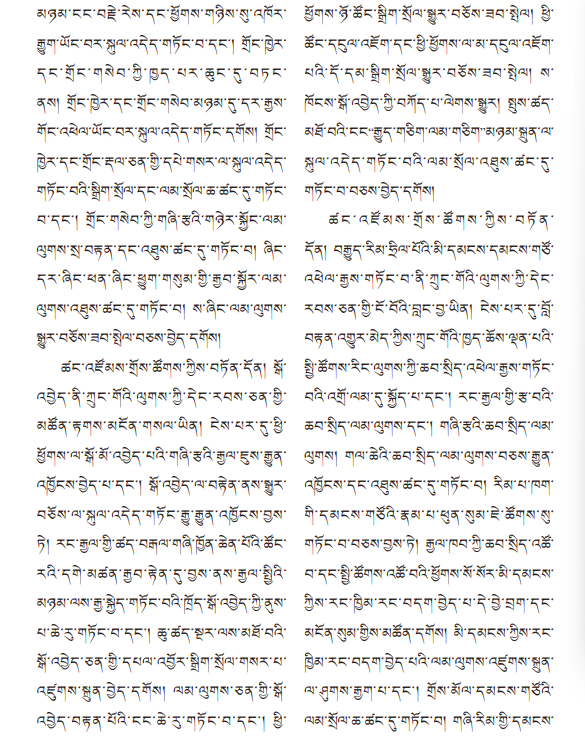 མཉམ་ངང་བརྗེ་རེས་དང་ཕྱོགས་གཉིས་སུ་འཁོར་
རྒྱུག་ཡོང་བར་སྐུལ་འདེད་གཏོང་བ་དང་། གྲོང་ཁྱེར་
དང་གྲོང་གསེབ་ཀྱི་ཁྱད་པར་ཆུང་དུ་བཏང་
ནས། གྲོང་ཁྱེར་དང་གྲོང་གསེབ་མཉམ་དུ་དར་རྒྱས་
གོང་འཕེལ་ཡོང་བར་སྐུལ་འདེད་གཏོང་དགོས། གྲོང་
ཁྱེར་དང་གྲོང་རྡལ་ཅན་གྱི་དཔེ་གསར་ལ་སྐུལ་འདེད་
གཏོང་བའི་སྒྲིག་སྲོལ་དང་ལམ་སྲོལ་ཆ་ཚང་དུ་གཏོང་
བ་དང་། གྲོང་གསེབ་ཀྱི་གཞི་རྩའི་གཉེར་སྐྱོང་ལམ་
ལུགས་སྲ་བརྟན་དང་འཐུས་ཚང་དུ་གཏོང་བ། ཞིང་
དར་ཞིང་ཕན་ཞིང་ཕྱུག་གསུམ་གྱི་རྒྱབ་སྐྱོར་ལམ་
ལུགས་འཐུས་ཚང་དུ་གཏོང་བ། ས་ཞིང་ལམ་ལུགས་
སྒྱུར་བཅོས་ཟབ་སྤེལ་བཅས་བྱེད་དགོས།
ཚང་འཛོམས་གྲོས་ཚོགས་ཀྱིས་བཏོན་དོན། སྒོ་
འབྱེད་ནི་ཀྲུང་གོའི་ལུགས་ཀྱི་དེང་རབས་ཅན་གྱི་
མཚོན་རྟགས་མངོན་གསལ་ཡིན། ངེས་པར་དུ་ཕྱི་
ཕྱོགས་ལ་སྒོ་མོ་འབྱེད་པའི་གཞི་རྩའི་རྒྱལ་ཇུས་རྒྱུན་
འཁྱོངས་བྱེད་པ་དང་། སྒོ་འབྱེད་ལ་བརྟེན་ནས་སྒྱུར་
བཅོས་ལ་སྐུལ་འདེད་གཏོང་རྒྱུ་རྒྱུན་འཁྱོངས་བྱས་
ཏེ། རང་རྒྱལ་གྱི་ཚད་བརྒལ་གཞི་ཁྱོན་ཆེན་པོའི་ཚོང་
རའི་དགེ་མཚན་རྒྱབ་རྟེན་དུ་བྱས་ནས་རྒྱལ་སྤྱིའི་
མཉམ་ལས་རྒྱ་སྐྱེད་གཏོང་བའི་ཁྲོད་སྒོ་འབྱེད་ཀྱི་ནུས་
པ་ཆེ་རུ་གཏོང་བ་དང་། ཆུ་ཚད་སྔར་ལས་མཐོ་བའི་
སྒོ་འབྱེད་ཅན་གྱི་དཔལ་འབྱོར་སྒྲིག་སྲོལ་གསར་པ་
འཛུགས་སྐྲུན་བྱེད་དགོས། ལམ་ལུགས་ཅན་གྱི་སྒོ་
འབྱེད་བརྟན་པོའི་ངང་ཆེ་རུ་གཏོང་བ་དང་། ཕྱི་
ཕྱོགས་ཉོ་ཚོང་སྒྲིག་སྲོལ་སྒྱུར་བཅོས་ཟབ་སྤེལ། ཕྱི་
ཚོང་དངུལ་འཇོག་དང་ཕྱི་ཕྱོགས་ལ་མ་དངུལ་འཇོག་
པའི་དོ་དམ་སྒྲིག་སྲོལ་སྒྱུར་བཅོས་ཟབ་སྤེལ། ས་
ཁོངས་སྒོ་འབྱེད་ཀྱི་བཀོད་པ་ལེགས་སྒྱུར། སྤུས་ཚད་
མཐོ་བའི་ངང་རྒྱུད་གཅིག་ལམ་གཅིག་མཉམ་སྐྲུན་ལ་
སྐུལ་འདེད་གཏོང་བའི་ལམ་སྲོལ་འཐུས་ཚང་དུ་
གཏོང་བ་བཅས་བྱེད་དགོས།
ཚང་འཛོམས་གྲོས་ཚོགས་ཀྱིས་བཏོན་
དོན། བརྒྱུད་རིམ་ཧྲིལ་པོའི་མི་དམངས་དམངས་གཙོ་
འཕེལ་རྒྱས་གཏོང་བ་ནི་ཀྲུང་གོའི་ལུགས་ཀྱི་དེང་
རབས་ཅན་གྱི་ངོ་བོའི་བླང་བྱ་ཡིན། ངེས་པར་དུ་བློ་
བརྟན་འགྱུར་མེད་ཀྱིས་ཀྲུང་གོའི་ཁྱད་ཆོས་ལྡན་པའི་
སྤྱི་ཚོགས་རིང་ལུགས་ཀྱི་ཆབ་སྲིད་འཕེལ་རྒྱས་གཏོང་
བའི་འགྲོ་ལམ་དུ་སྐྱོད་པ་དང་། རང་རྒྱལ་གྱི་རྩ་བའི་
ཆབ་སྲིད་ལམ་ལུགས་དང་། གཞི་རྩའི་ཆབ་སྲིད་ལམ་
ལུགས། གལ་ཆེའི་ཆབ་སྲིད་ལམ་ལུགས་བཅས་རྒྱུན་
འཁྱོངས་དང་འཐུས་ཚང་དུ་གཏོང་བ། རིམ་པ་ཁག་
གི་དམངས་གཙོའི་རྣམ་པ་ཕུན་སུམ་ཇེ་ཚོགས་སུ་
གཏོང་བ་བཅས་བྱས་ཏེ། རྒྱལ་ཁབ་ཀྱི་ཆབ་སྲིད་འཚོ་
བ་དང་སྤྱི་ཚོགས་འཚོ་བའི་ཕྱོགས་སོ་སོར་མི་དམངས་
ཀྱིས་རང་ཁྱིམ་རང་བདག་བྱེད་པ་དེ་བྱེ་བྲག་དང་
མངོན་སུམ་གྱིས་མཚོན་དགོས། མི་དམངས་ཀྱིས་རང་
ཁྱིམ་རང་བདག་བྱེད་པའི་ལམ་ལུགས་འཛུགས་སྐྲུན་
ལ་ཤུགས་རྒྱག་པ་དང་། གྲོས་མོལ་དམངས་གཙོའི་
ལམ་སྲོལ་ཆ་ཚང་དུ་གཏོང་བ། གཞི་རིམ་གྱི་དམངས་